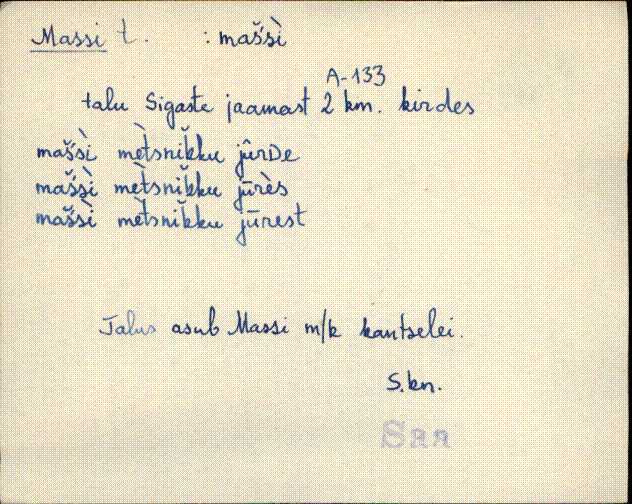 Massi t. : maśśì
A-133
talu Sigaste jaamast 2 km. kirdes
maśśì mètsnĭkku jûrDe
maśśì mètsnĭkku jūrès
maśśì mètsnĭkku jūrest
Talus asub Massi m/k kantselei.
S.kn.
Saa